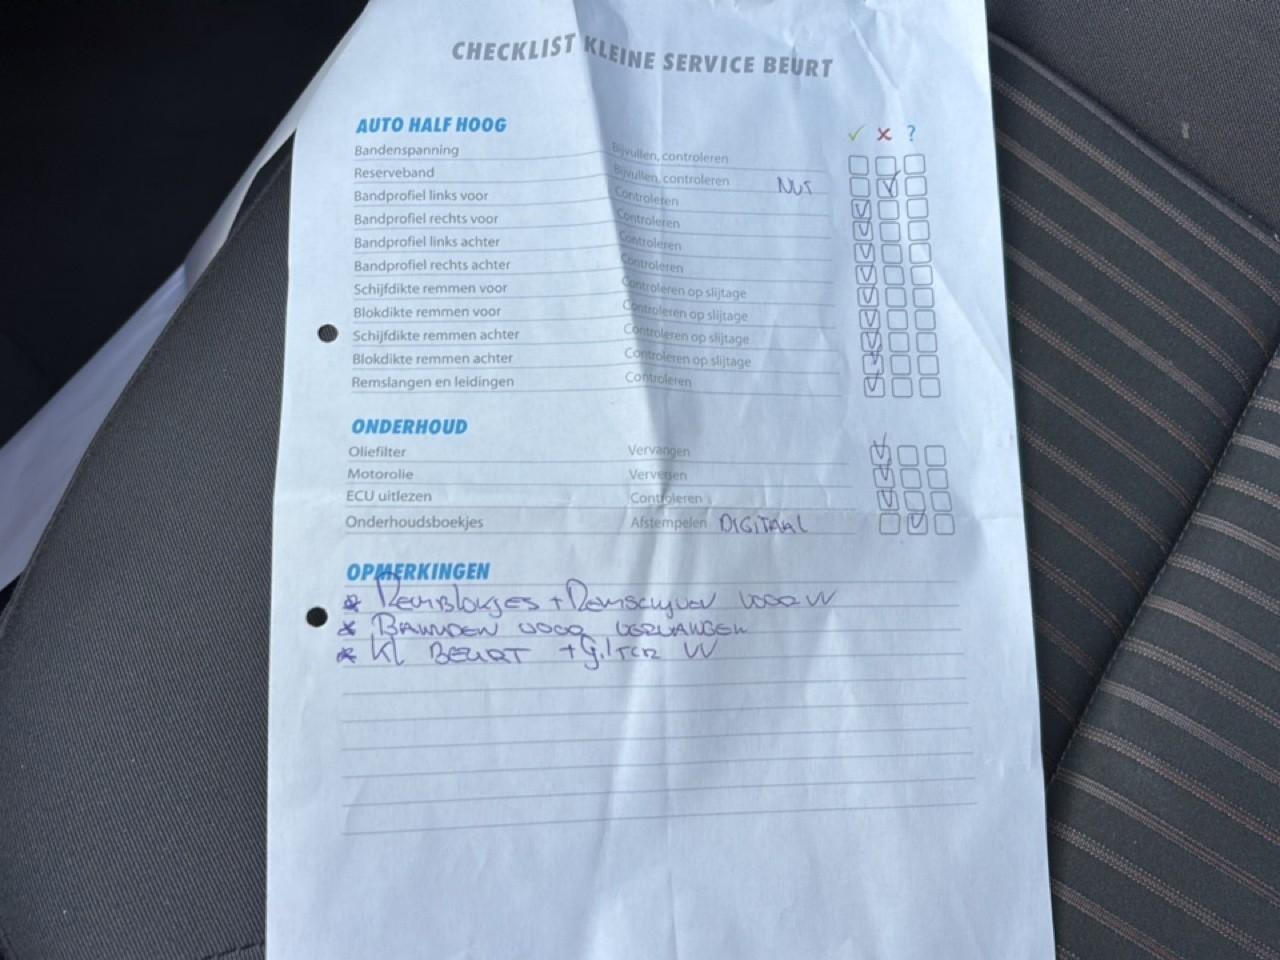 CHECKLIST KLEINE SERVICE BEURT
AUTO HALF HOOG ✓ ✗ ?
Bandenspanning Bijvullen, controleren
Reserveband Bijvullen, controleren NVT
Bandprofiel links voor Controleren
Bandprofiel rechts voor Controleren
Bandprofiel links achter Controleren
Bandprofiel rechts achter Controleren
Schijfdikte remmen voor Controleren op slijtage
Blokdikte remmen voor Controleren op slijtage
Schijfdikte remmen achter Controleren op slijtage
Blokdikte remmen achter Controleren op slijtage
Remslangen en leidingen Controleren
ONDERHOUD
Oliefilter Vervangen
Motorolie Verversen
ECU uitlezen Controleren
Onderhoudsboekjes Afstempelen DIGITAAL
OPMERKINGEN
* Remblokjes + Remschijven voor VV
* BANDEN VOOR VERVANGEN
* KL BEURT + VV